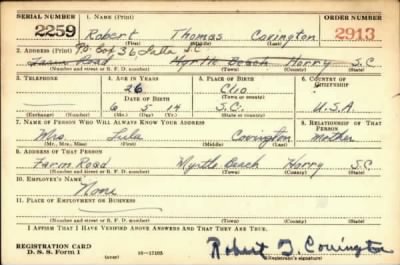 SERIAL NUMBER 1. NAME (Print) ORDER NUMBER
2259 Robert Thomas Covington 2913
(First) (Middle) (Last)
2. ADDRESS (Print) P.O. Box 36 Lula S.C
Farm Road Myrtle Beach Horry S.C.
(Number and street or R. F. D. number) (Town) (County) (State)
3. TELEPHONE 4. AGE IN YEARS 5. PLACE OF BIRTH 6. COUNTRY OF CITIZENSHIP
26 Clio
DATE OF BIRTH (Town or county)
6 5 14 S.C. U.S.A
(Exchange) (Number) (Mo.) (Day) (Yr.) (State or country)
7. NAME OF PERSON WHO WILL ALWAYS KNOW YOUR ADDRESS 8. RELATIONSHIP OF THAT PERSON
Mrs. Lula Covington Mother
(Mr., Mrs., Miss) (First) (Middle) (Last)
9. ADDRESS OF THAT PERSON
Farm Road Myrtle Beach Horry S.C.
(Number and street or R. F. D. number) (Town) (County) (State)
10. EMPLOYER'S NAME
None
11. PLACE OF EMPLOYMENT OR BUSINESS
(Number and street or R. F. D. number) (Town) (County) (State)
I AFFIRM THAT I HAVE VERIFIED ABOVE ANSWERS AND THAT THEY ARE TRUE.
REGISTRATION CARD
D. S. S. Form 1 (over) Robert T. Covington
(Registrant's signature)